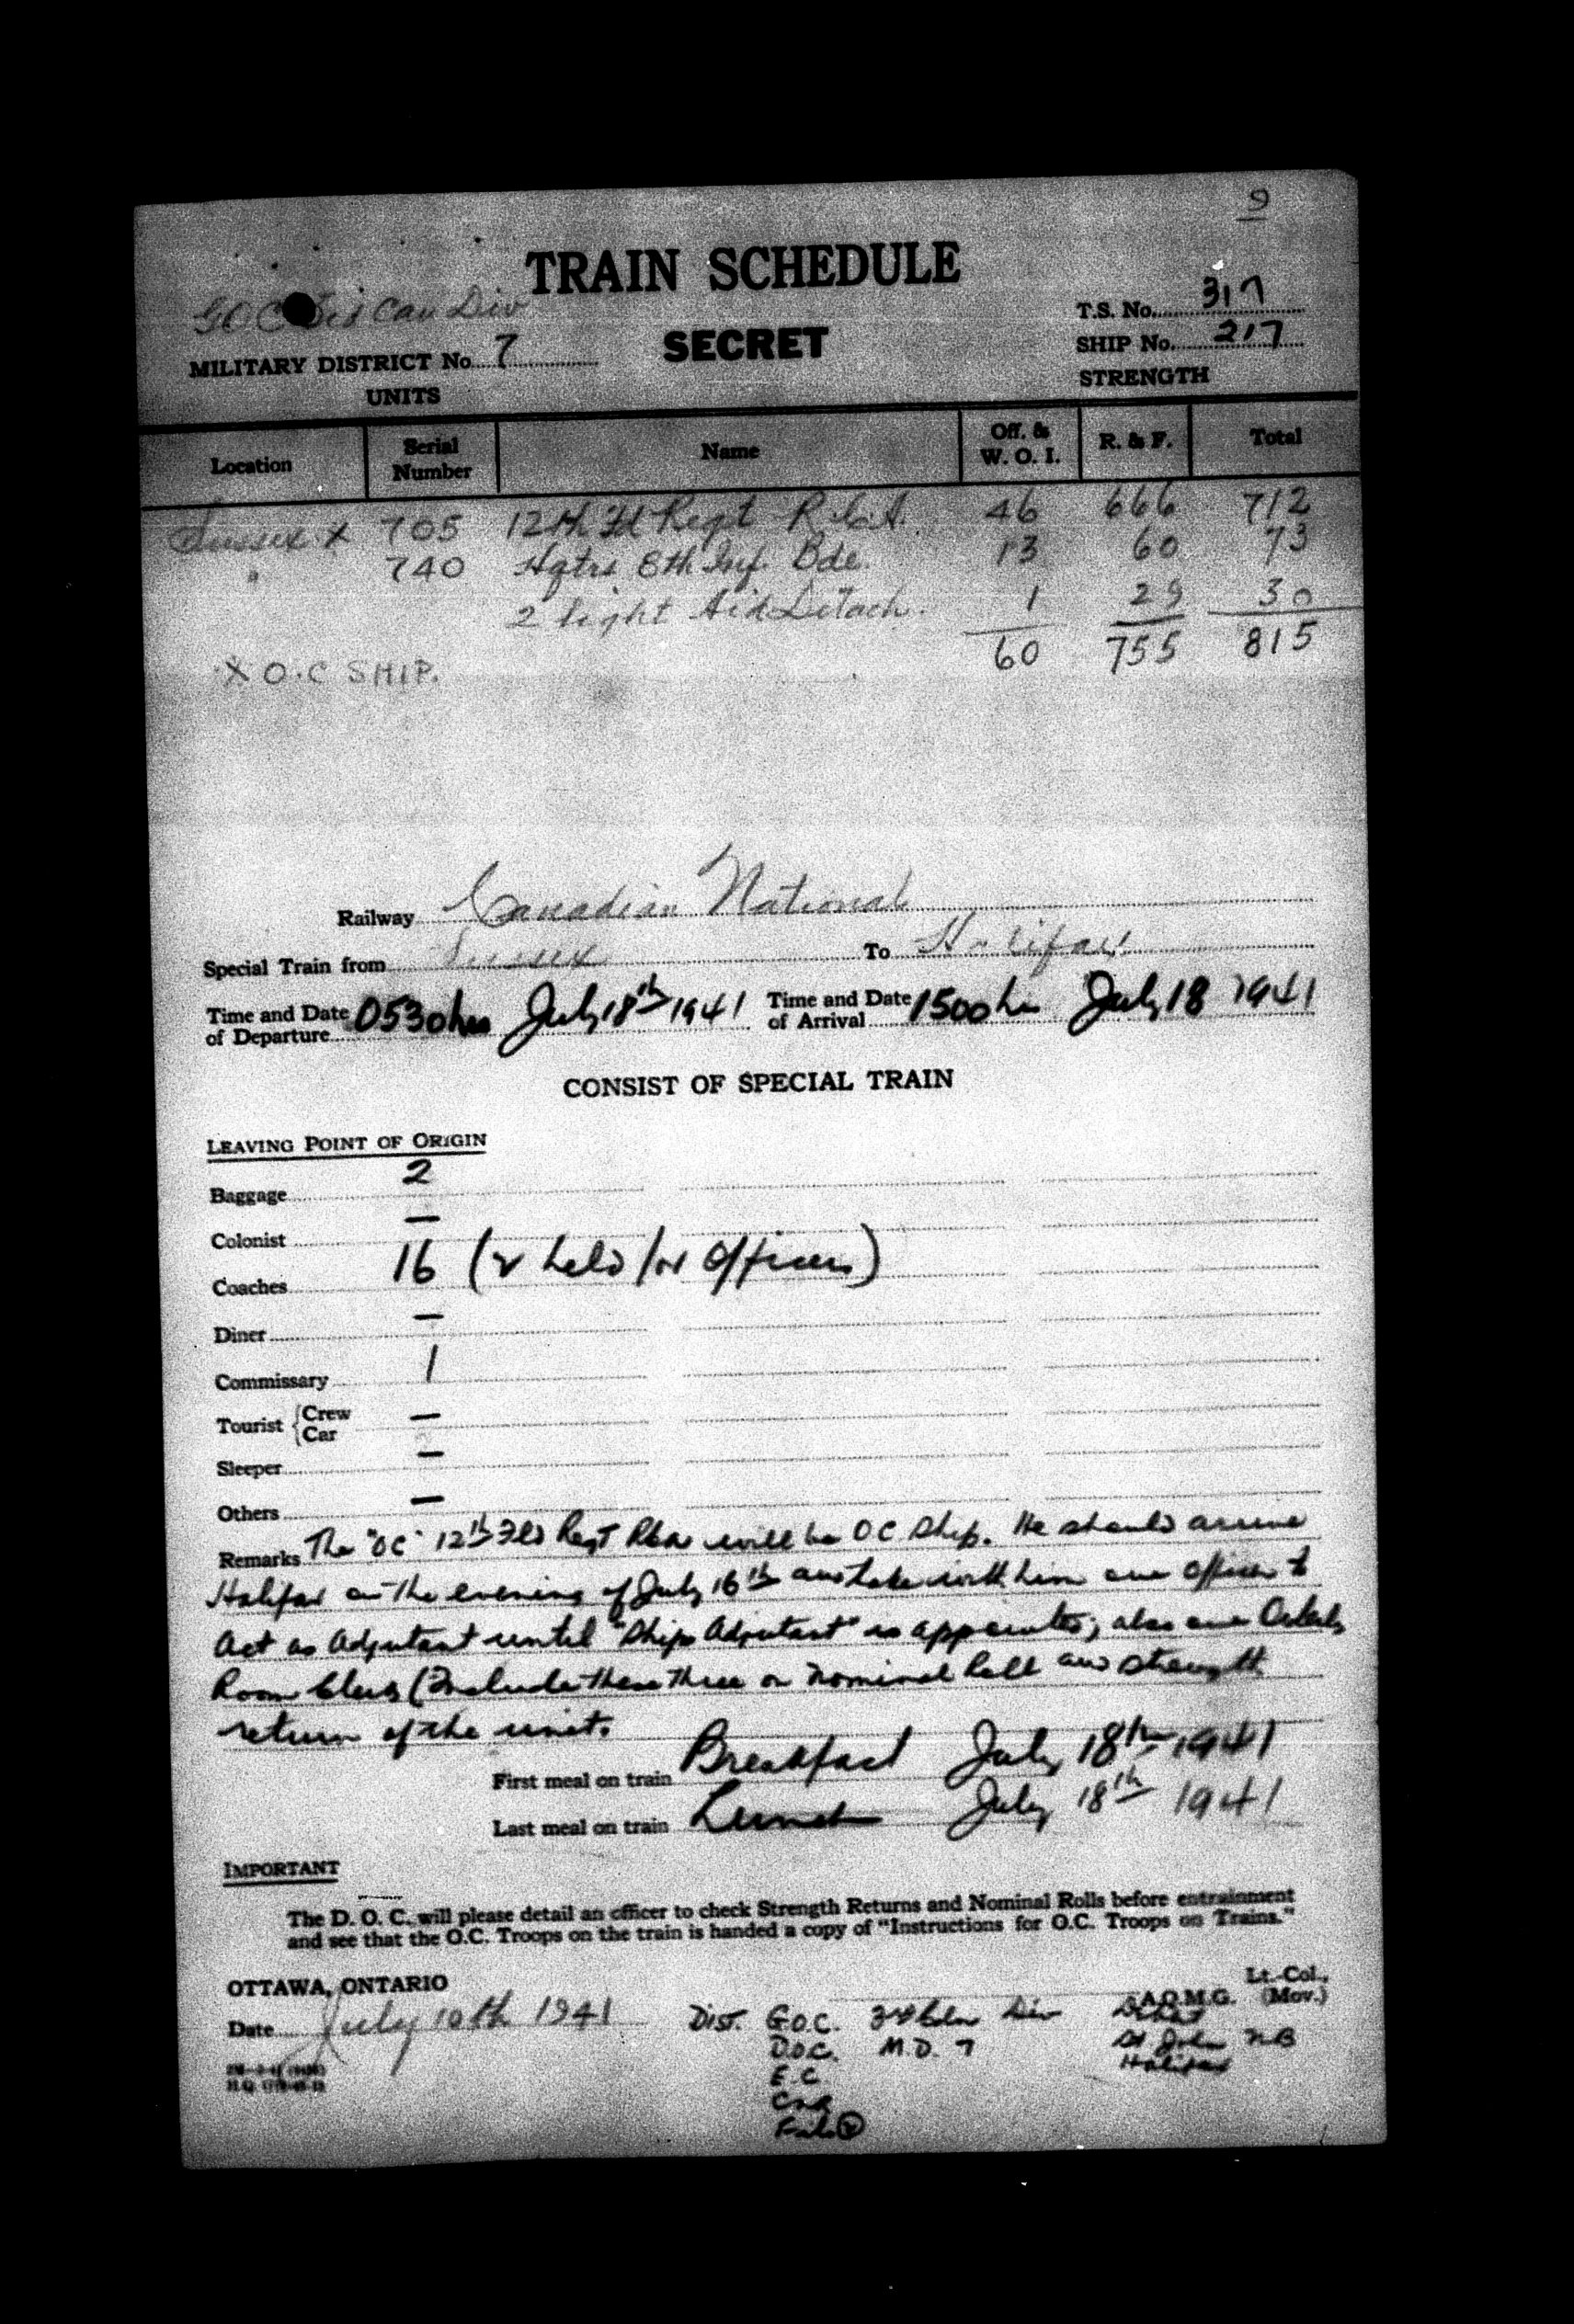 9
TRAIN SCHEDULE
GOC Can Div
T.S. No. 317
SECRET
SHIP No. 217
MILITARY DISTRICT No. 7
STRENGTH
UNITS
Location Serial Number Name Off. & W. O. I. R. & F. Total
Sussex X 705 12th Fd Regt R.C.A. 46 666 712
" 740 Hqtrs 8th Inf. Bde. 13 60 73
2 light Aid Detach. 1 29 30
60 755 815
X O.C SHIP.
Railway Canadian National
Special Train from Sussex To Halifax
Time and Date of Departure 0530 hrs July 18th 1941 Time and Date of Arrival 1500 hrs July 18 1941
CONSIST OF SPECIAL TRAIN
LEAVING POINT OF ORIGIN
Baggage 2
Colonist —
Coaches 16 (2 held for Officers)
Diner —
Commissary 1
Tourist { Crew Car —
Sleeper —
Others —
Remarks The "OC" 12th Fld Regt RCA will be OC Ship. He should arrive
Halifax on the evening of July 16th and take with him one officer to
Act as Adjutant until "Ships Adjutant" is appointed; also one Orderly
Room Clerk (Include these three on nominal Roll and strength
return of the unit.
First meal on train Breakfast July 18th 1941
Last meal on train Lunch July 18th 1941
IMPORTANT
The D. O. C. will please detail an officer to check Strength Returns and Nominal Rolls before entrainment
and see that the O.C. Troops on the train is handed a copy of "Instructions for O.C. Troops on Trains."
OTTAWA, ONTARIO
Lt.-Col.,
A.Q.M.G. (Mov.)
Date July 10th 1941
Dist. G.O.C. 3rd Cdn Div
D.O.C. M.D. 7 St John NB
E.C. Halifax
CNR
File 2